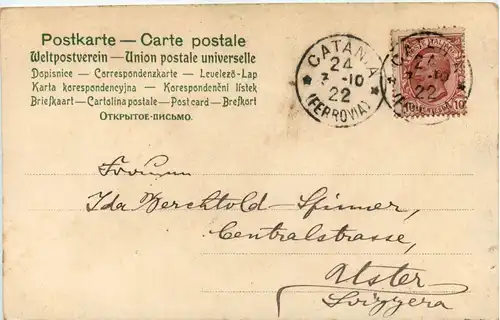 Postkarte — Carte postale
Weltpostverein — Union postale universelle
Dopisnice — Correspondenzkarte — Levelező-Lap
Karta korespondencyjna — Korespondenční lístek
Briefkaart — Cartolina postale — Post card — Brefkort
Открытое-письмо.
CATANIA
24
7-10
22
(FERROVIA)
CATANIA
24
7-10
22
10
Ida Berchtold-Spinner,
Centralstrasse,
Uster
Svizzera